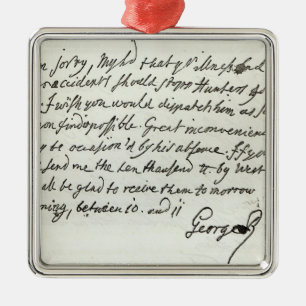 n sorry, Myld that yr illness and
accidents should stopp Hunters g
I wish you would dispatch him as s
possible. Great inconvenienc
y be occasion'd by his absence. If yo
send me the ten thousand tt. by West
all be glad to receive them to morrow
ning, between 10. and 11
George R